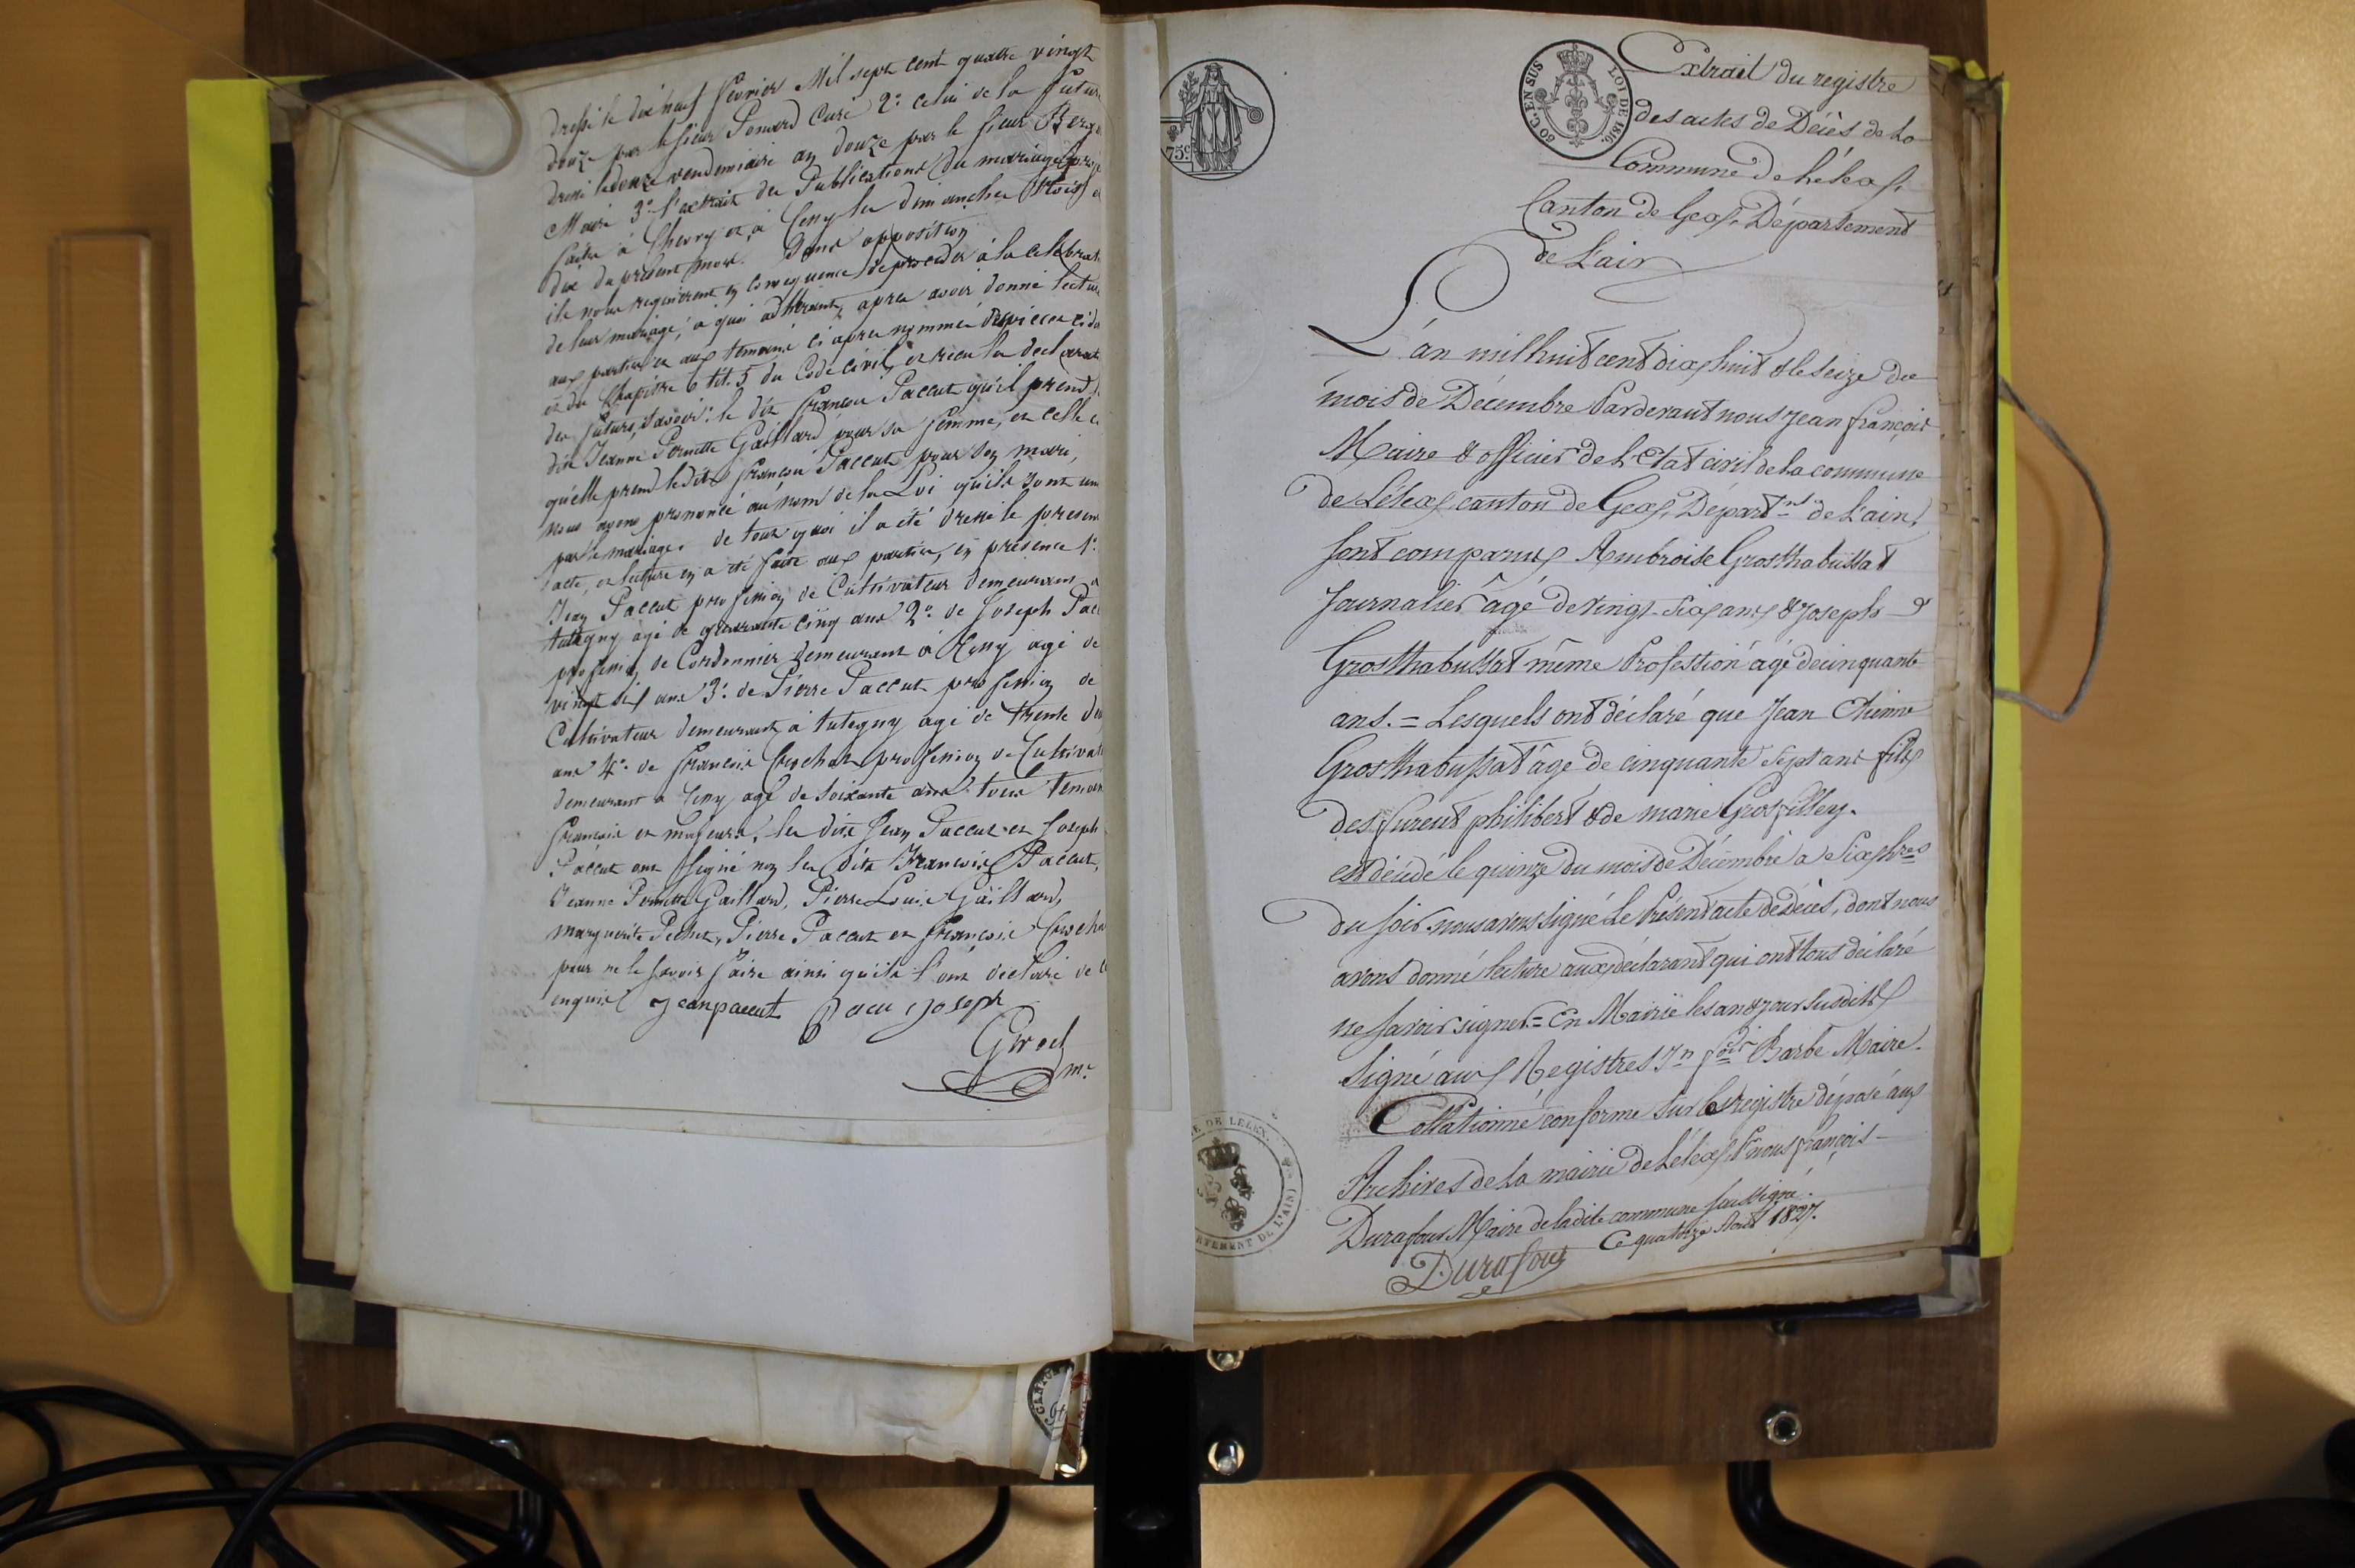 dressé le dix neuf fevrier Mil sept cent quatre vingt
douze par le sieur Ponard Curé 2.º celui de la future
dressé le douze vendemiaire an douze par le sieur
Maire 3.º l'extrait des Publications du mariage
faites à Chevry et à Ceny les dimanches trois et
dix du présent mois. Sans opposition
ils nous requierent en conséquence de proceder à la celebrat
de leur mariage, a quoi adherant, apres avoir donné lecture
aux parties et aux temoins ci apres nommés des pieces
et du Chapitre 6 tit. 5 du Code civil, et recu la declarat
des futurs, savoir: le dit françois Paccut qu'il prend
dite Jeanne Pernette Gaillard pour sa femme, et celle ci
qu'elle prend le dit françois Paccut pour son mari,
nous avons prononcé au nom de la Loi qu'ils sont uni
par le mariage. de tout quoi il a été dressé le present
acte, et lecture en a été faite aux parties, en présence 1.º
Jean Paccut profession de Cultivateur demeurant a
agé de quarante cinq ans 2.º de Joseph Pac
profession de Cordonnier demeurant à Ceny agé de
vingt six ans 3.º de Pierre Paccut profession de
Cultivateur demeurant à agé de trente
ans 4.º de francois Crochat profession de Cultivat
demeurant a Ceny agé de soixante ans tous temoin
francois et majeurs, les dits Jean Paccut et Joseph
Paccut ont signé non les dits Francois Paccut,
Jeanne Pernette Gaillard, Pierre Louis Gaillard,
marguerite Pechet, Pierre Paccut et françois Crocha
pour ne le savoir faire ainsi qu'ils l'ont déclaré de
enquis jean paccut joseph
Girod
m.e
75c
60 C. EN SUS
LOI DE 1816.
Extrait du registre
des actes de Décès de La
Commune de Léleax,
Canton de Geax, Département
de L'ain
L'án mil huit cent diax huit & le seize du
mois de Décembre Pardevant nous Jean françois
Maire & officier de L'Etat civil de la commune
de Léleax canton de Geax, Départ.nt de L'ain,
sont comparus Ambroise Grosthabussat
Journalier âgé de vingt-siax ans & Joseph
Grosthabussat même Profession âgé de cinquante
ans. = Lesquels ont déclaré que Jean
Grosthabussat âgé de cinquante sept ans fils
des furent philibert & de marie Grosfilley.
est décédé le quinze du mois de Décembre a siax hres
du soir nous avons signé Le Présent acte de décès, dont nous
avons donné lecture aux déclarant qui ont tous déclaré
ne savoir signer = En Mairie les an & jour susdits
Signé aux Registres Jn fois Barbe Maire.
Collationné conforme sur le registre déposé aux
Archives de la mairie de Léleax Pr nous françois
Durafour Maire de ladite commune soussigné.
Ce quatorze Août 1827.
Durafour
DE LELEX.
DE L'AIN